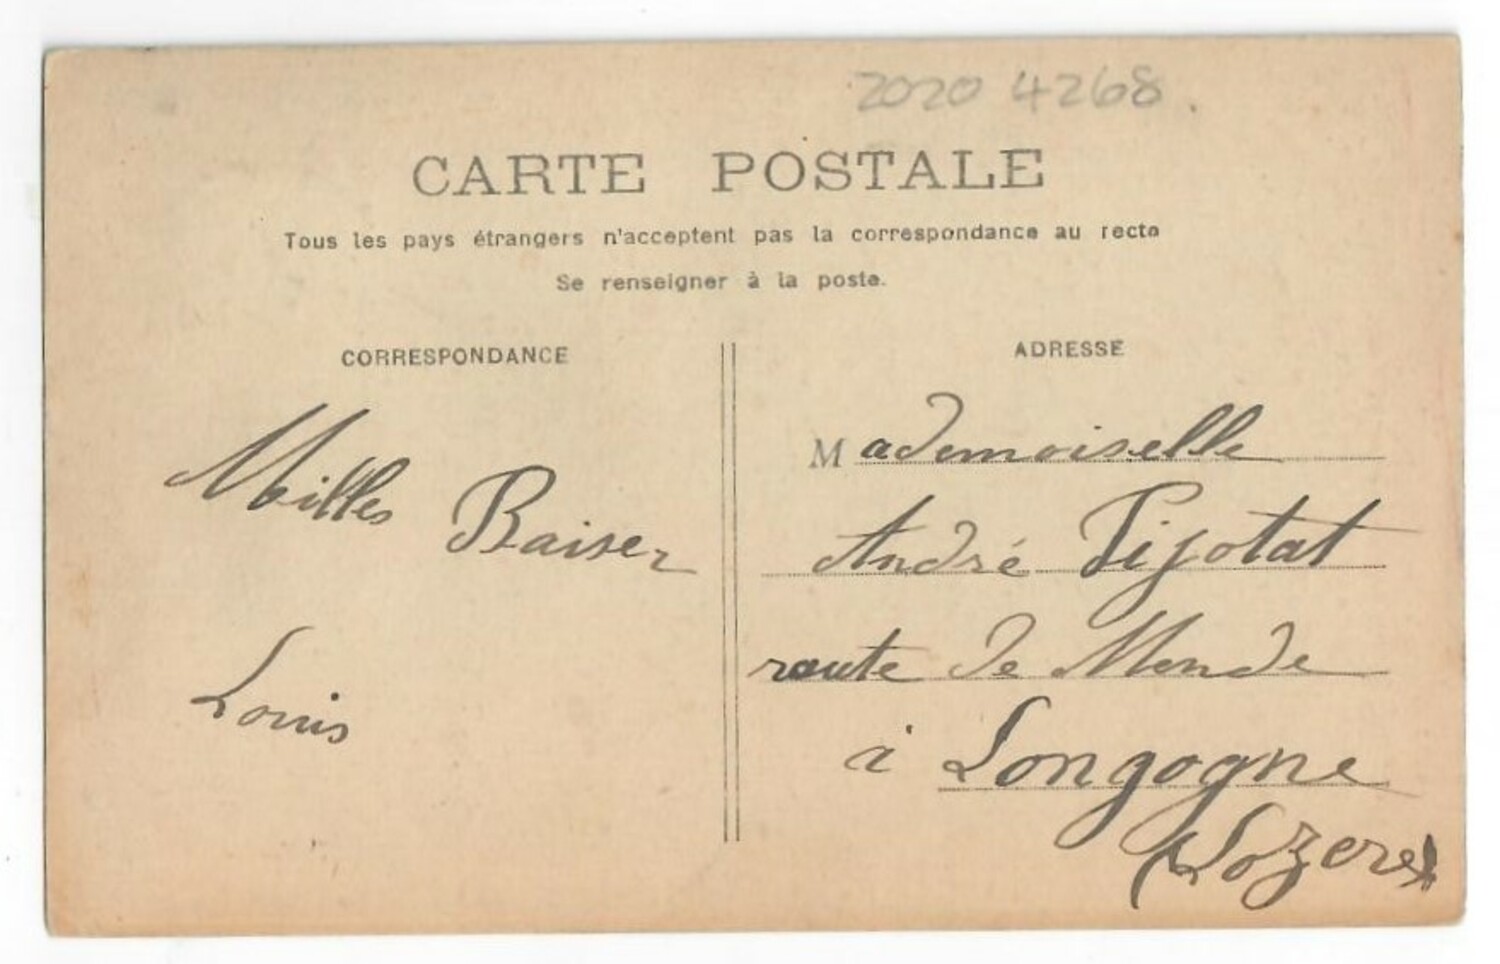 2020 4268.
CARTE POSTALE
Tous les pays étrangers n'acceptent pas la correspondance au recto
Se renseigner à la poste.
CORRESPONDANCE
Milles Baiser
Louis
ADRESSE
Mademoiselle
André Pijotat
route de Mende
à Longogne
(Lozere)